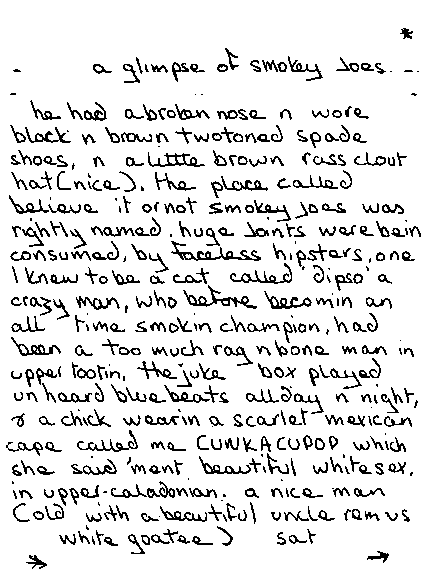 *
- a glimpse of smokey Joes. -
he had a broken nose n wore
black n brown twotoned spade
shoes, n a little brown rass clout
hat (nice). the place called
believe it or not smokey Joes was
rightly named. huge Joints were bein
consumed, by faceless hipsters, one
I knew to be a cat called 'dipso' a
crazy man, who before becomin an
all time smokin champion, had
been a too much rag n bone man in
upper tootin, the juke box played
un heard bluebeats allday n night,
& a chick wearin a scarlet mexican
cape called me CUNKACUPOP which
she said 'ment beautiful whitesex.
in upper-caladonian. a nice man
Cold with a beautiful uncle remus
white goatee) sat